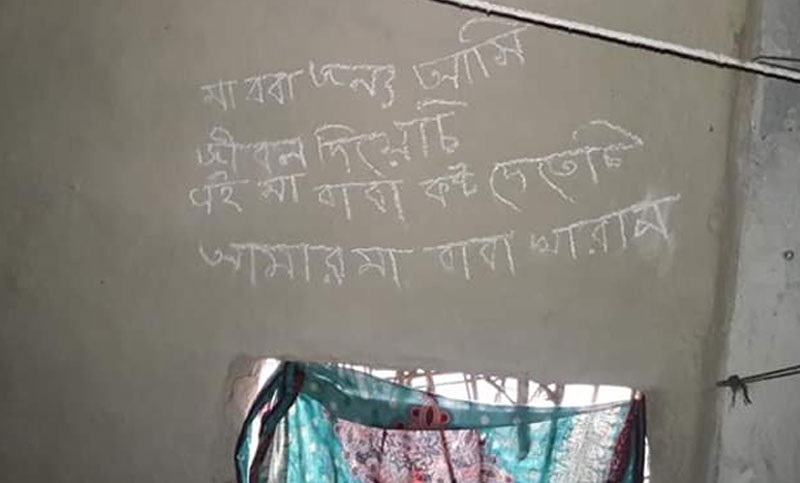 মা ববা জন্য আমি
জীবন দিয়েচি
এই মা বাবা কষ্ট দেতেচি
আমার মা বাবা খারাপ